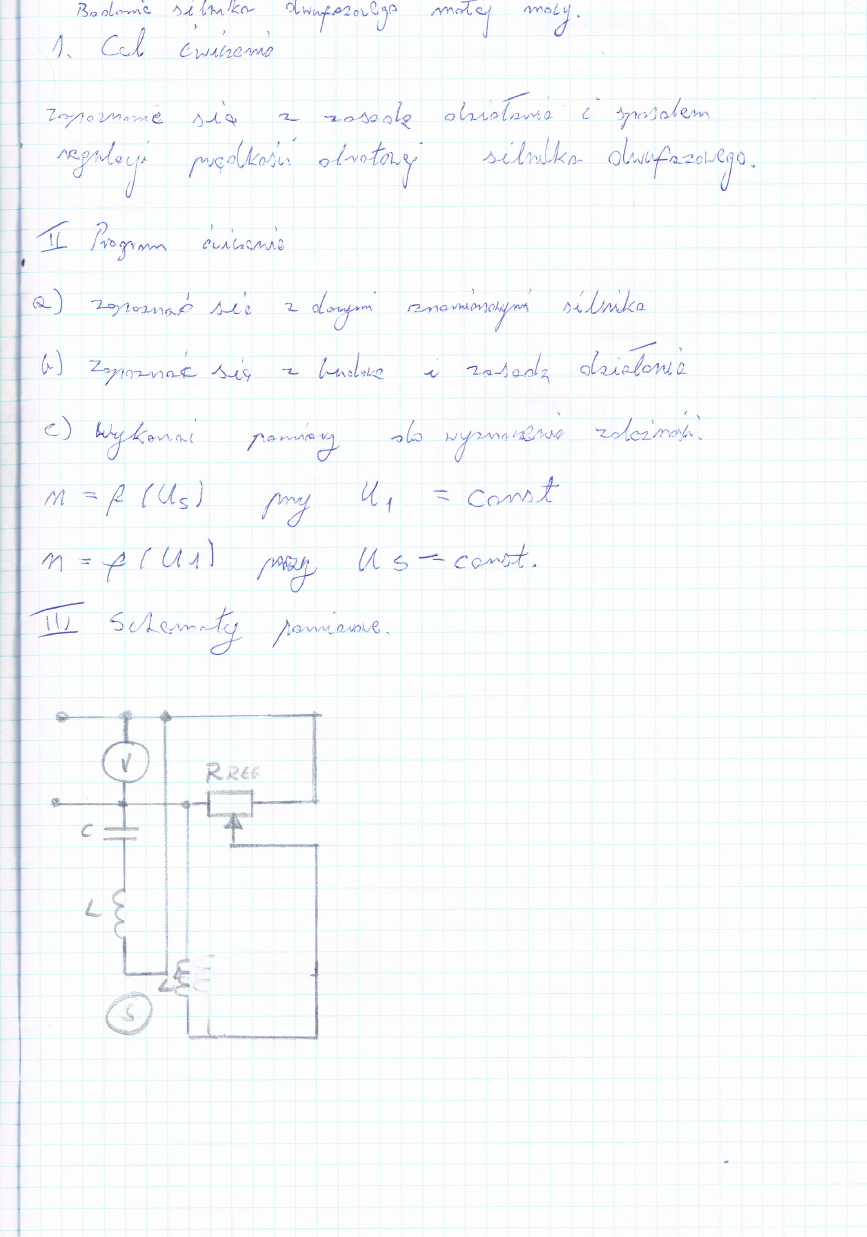 Badanie silnika dwufazowego małej mocy.
1. Cel ćwiczenia
zapoznanie się z zasadą działania i sposobem
regulacji prędkości obrotowej silnika dwufazowego.
II Program ćwiczenia
a) zapoznać się z danymi znamionowymi silnika
b) zapoznać się z budową i zasadą działania
c) Wykonać pomiary do wyznaczenia zależności.
n = f (Us) przy U1 = const
n = f (U1) przy Us = const.
III Schematy pomiarowe.
V
RREG
C
L
L
S